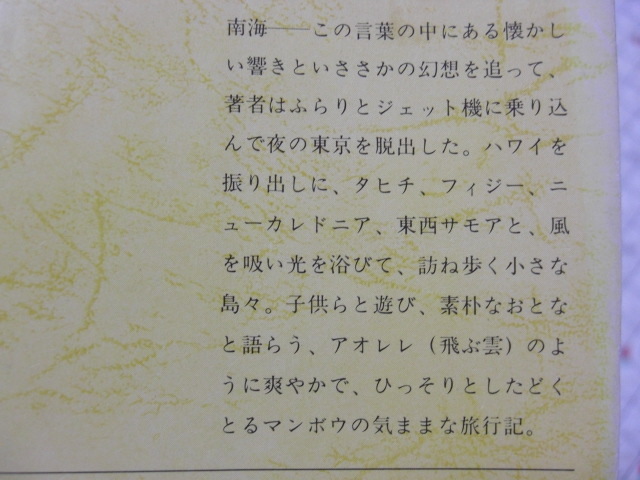 南海――この言葉の中にある懐かし
い響きといささかの幻想を追って、
著者はふらりとジェット機に乗り込
んで夜の東京を脱出した。ハワイを
振り出しに、タヒチ、フィジー、ニ
ューカレドニア、東西サモアと、風
を吸い光を浴びて、訪ね歩く小さな
島々。子供らと遊び、素朴なおとな
と語らう、アオレレ（飛ぶ雲）のよ
うに爽やかで、ひっそりとしたどく
とるマンボウの気ままな旅行記。